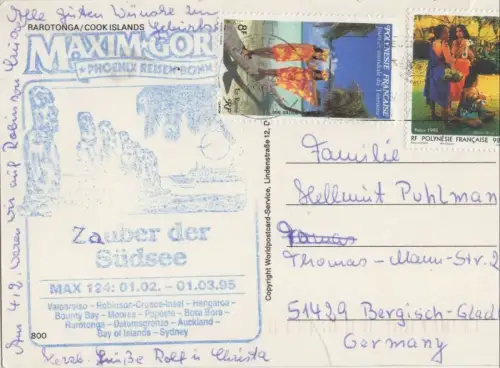 Alle guten Wünsche zum
RAROTONGA/COOK ISLANDS
MAXIM GOR
PHOENIX REISEN BONN
Zauber der
Südsee
MAX 124: 01.02. – 01.03.95
Valparaiso – Robinson-Crusoe-Insel – Hangaroa
Bounty Bay – Moorea – Papeete – Bora Bora
Rarotonga – Datumsgrenze – Auckland
Bay of Islands – Sydney
800
Am 4.2. waren wir auf Robinson
Herzl. Grüße Rolf u Christa
Copyright Worldpostcard-Service, Lindenstraße 12, D
POLYNESIE FRANCAISE
RF POLYNÉSIE FRANÇAISE
Familie
Hellmut Puhlman
Thomas-Mann-Str. 2
51429 Bergisch-Glad
Germany